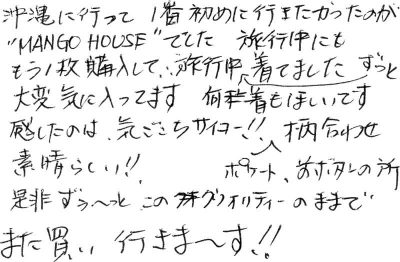 沖縄に行って 1番初めに行きたかったのが
"MANGO HOUSE"でした 旅行中にも
もう1枚購入して、旅行中 ずっと 着てました
大変気に入ってます 何着もほしいです
感じたのは、気ごこちサイコー!! 柄合わせ
素晴らしい!! ポケート、前ボタンの所
是非ずぅ〜っと このクオリティーのままで
また買い行きま〜す!!